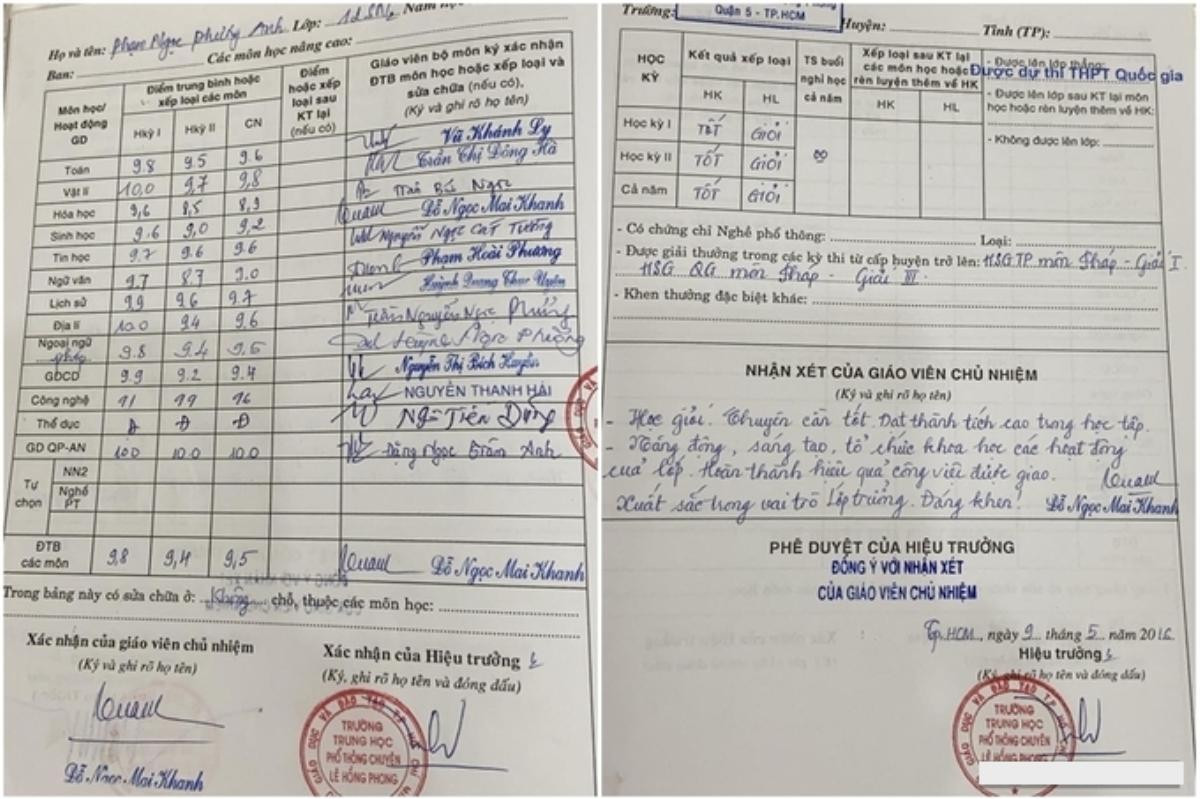 Họ và tên: Phạm Ngọc Phương Anh Lớp: Năm học
Ban: Các môn học nâng cao:
Môn học/ Hoạt động GD
Điểm trung bình hoặc xếp loại các môn
Hkỳ I Hkỳ II CN
Điểm hoặc xếp loại sau KT lại (nếu có)
Giáo viên bộ môn ký xác nhận ĐTB môn học hoặc xếp loại và sửa chữa (nếu có),
(Ký và ghi rõ họ tên)
Vũ Khánh Ly
Toán 9.8 9.5 9.6 Trần Thị Đông Hà
Vật lí 10.0 9.7 9,8
Hóa học 9,6 8,5 8,9 Đỗ Ngọc Mai Khanh
Sinh học 9.6 9,0 9,2 Nguyễn Ngọc Cát Tường
Tin học 9.7 9.6 9.6 Phạm Hoài Phương
Ngữ văn 9.7 8.7 9.0
Lịch sử 9.9 9.6 9.7 Trần Nguyễn Ngọc
Địa lí 10.0 9.4 9.6
Ngoại ngữ Pháp 9.8 9.4 9.5 Nguyễn Thị Bích Huyền
GDCD 9.9 9.2 9.4 NGUYỄN THANH HẢI
Công nghệ Ngô Tiến Dũng
Thể dục Đ Đ Đ
GD QP-AN 10.0 10.0 10.0 Đặng Ngọc Trâm Anh
Tự chọn
NN2
Nghề PT
ĐTB các môn 9,8 9,4 9,5 Đỗ Ngọc Mai Khanh
Trong bảng này có sửa chữa ở: Không chỗ, thuộc các môn học:
Xác nhận của giáo viên chủ nhiệm
(Ký và ghi rõ họ tên)
Đỗ Ngọc Mai Khanh
Xác nhận của Hiệu trưởng
(Ký, ghi rõ họ tên và đóng dấu)
TRƯỜNG
TRUNG HỌC
PHỔ THÔNG CHUYÊN
LÊ HỒNG PHONG
Trường: Quận 5 - TP.HCM Huyện: Tỉnh (TP):
HỌC KỲ
Kết quả xếp loại
HK HL
TS buổi nghỉ học cả năm
Xếp loại sau KT lại các môn học hoặc rèn luyện thêm về HK
HK HL
- Được lên lớp thẳng:
Được dự thi THPT Quốc gia
- Được lên lớp sau KT lại môn học hoặc rèn luyện thêm về HK:
- Không được lên lớp:
Học kỳ I TỐT GIỎI
Học kỳ II TỐT GIỎI
Cả năm TỐT GIỎI
- Có chứng chỉ Nghề phổ thông: Loại:
- Được giải thưởng trong các kỳ thi từ cấp huyện trở lên: HSG TP môn Pháp - Giải I
HSG QG môn Pháp - Giải III
- Khen thưởng đặc biệt khác:
NHẬN XÉT CỦA GIÁO VIÊN CHỦ NHIỆM
(Ký và ghi rõ họ tên)
- Học giỏi. Chuyên cần tốt. Đạt thành tích cao trong học tập.
- Năng động, sáng tạo, tổ chức khoa học các hoạt động
của lớp. Hoàn thành hiệu quả công việc được giao.
Xuất sắc trong vai trò Lớp trưởng. Đáng khen! Đỗ Ngọc Mai Khanh
PHÊ DUYỆT CỦA HIỆU TRƯỞNG
ĐỒNG Ý VỚI NHẬN XÉT
CỦA GIÁO VIÊN CHỦ NHIỆM
Tp.HCM, ngày 9 tháng 5 năm 2016
Hiệu trưởng
(Ký, ghi rõ họ tên và đóng dấu)
TRƯỜNG
TRUNG HỌC
PHỔ THÔNG CHUYÊN
LÊ HỒNG PHONG